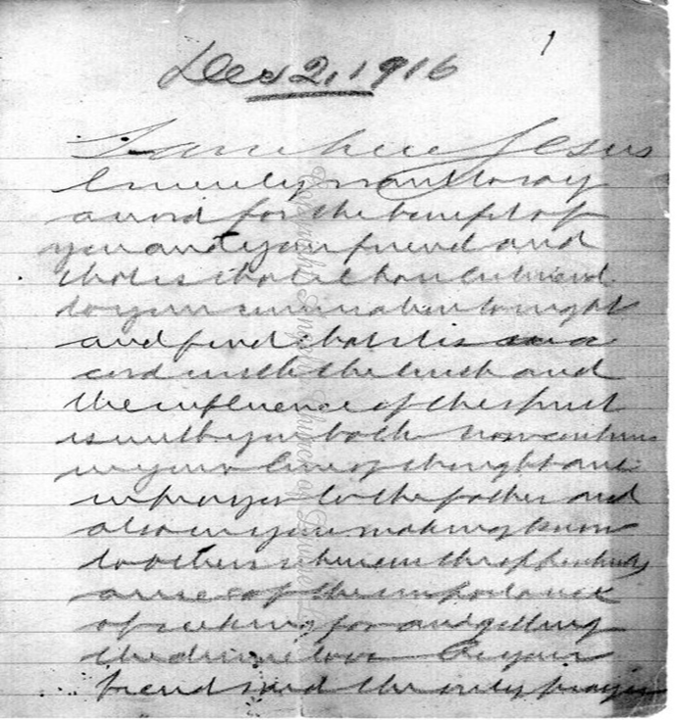 1
Dec 2, 1916
I am here Jesus
I merely want to say
a word for the benefit of
you and your friend and
that is that I have listened
to your conversation tonight
and find that it is in a
cord with the truth and
the influence of the spirit
is with you both now continue
in your line of thought and
in prayer to the father and
also in your making known
to others whenever the opportunity
arises of the importance
of seeking for and getting
the divine love As your
friend said the only prayer